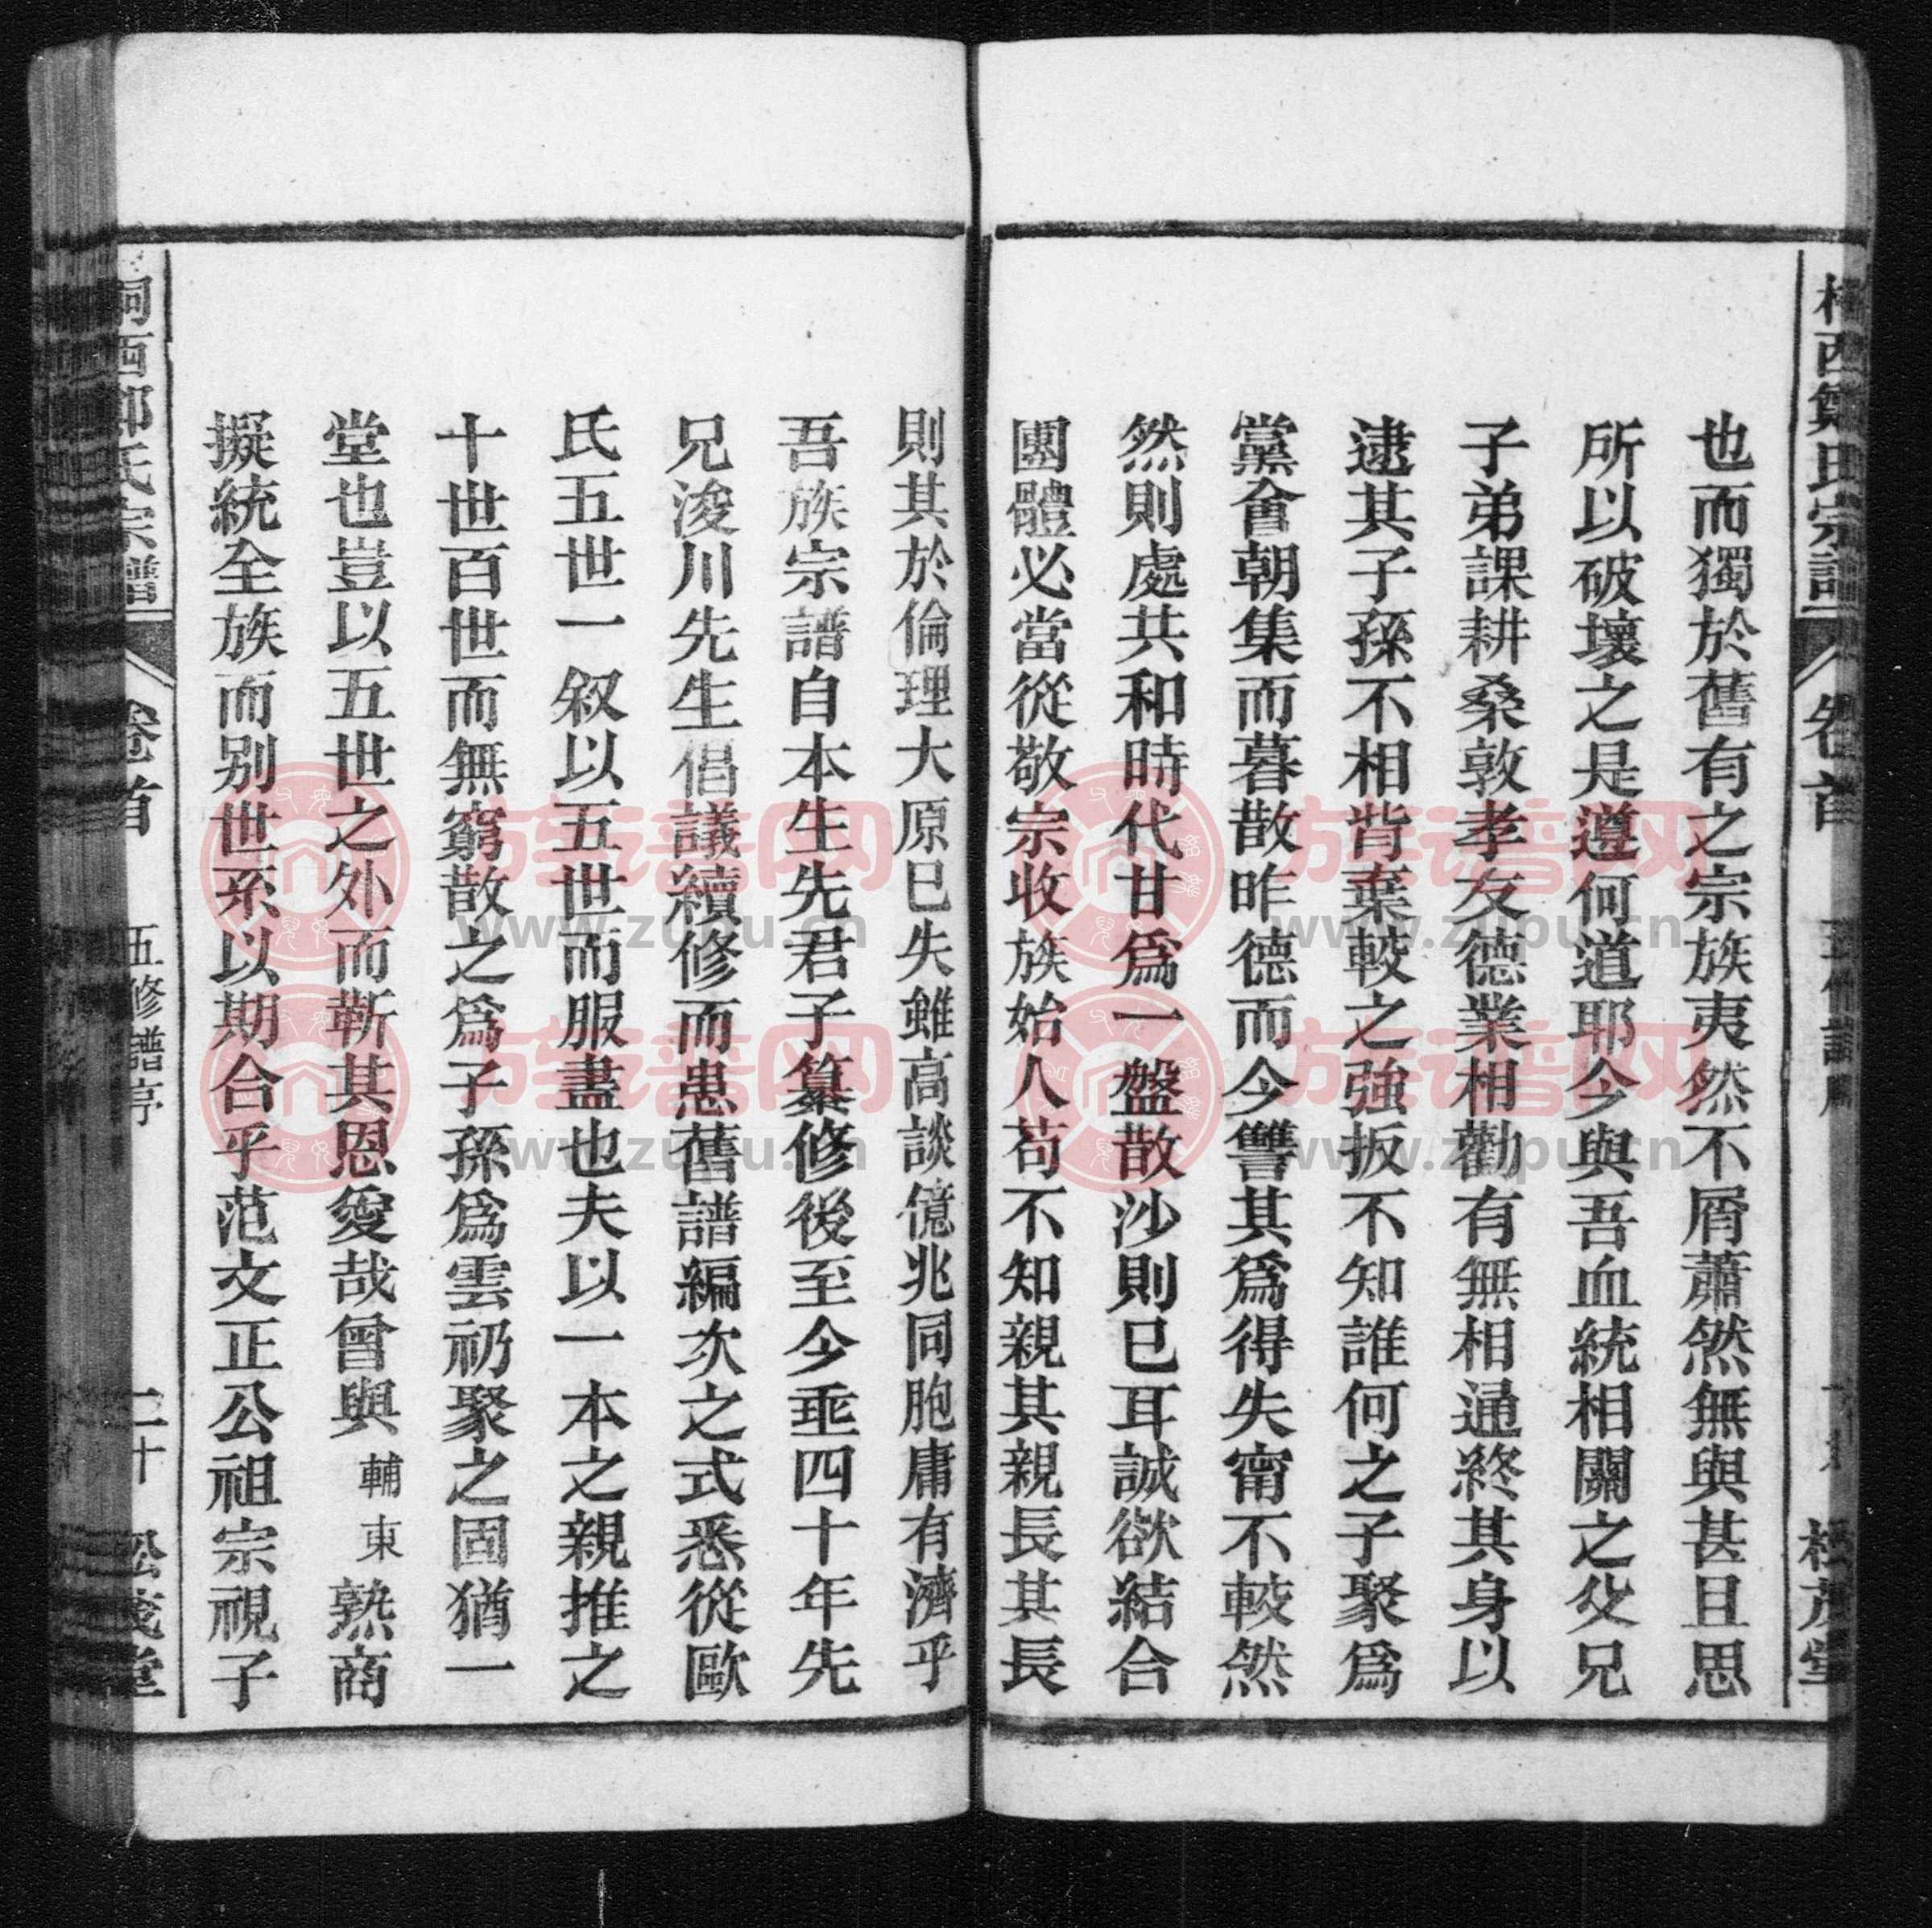 也而獨於舊有之宗族夷然不屑蕭然無與甚且思
所以破壞之是遵何道耶今與吾血統相關之父兄
子弟課耕桑敦孝友德業相勸有無相通終其身以
逮其子孫不相背棄較之強扳不知誰何之子聚為
黨會朝集而暮散昨德而今讐其為得失甯不較然
然則處共和時代甘為一盤散沙則已耳誠欲結合
團體必當從敬宗收族始人苟不知親其親長其長
則其於倫理大原已失雖高談億兆同胞庸有濟乎
吾族宗譜自本生先君子纂修後至今乖四十年先
兄浚川先生倡議續修而患舊譜編次之式悉從歐
氏五世一叙以五世而服盡也夫以一本之親推之
十世百世而無窮散之為子孫為雲礽聚之固猶一
堂也豈以五世之外而靳其恩愛哉曾與輔東熟商
擬統全族而别世系以期合乎范文正公祖宗視子
西鄭氏宗譜
卷首
五修譜序
二十
松茂堂
族谱网
www.zupu.cn
族谱网
www.zupu.cn
族谱网
www.zupu.cn
族谱网
www.zupu.cn